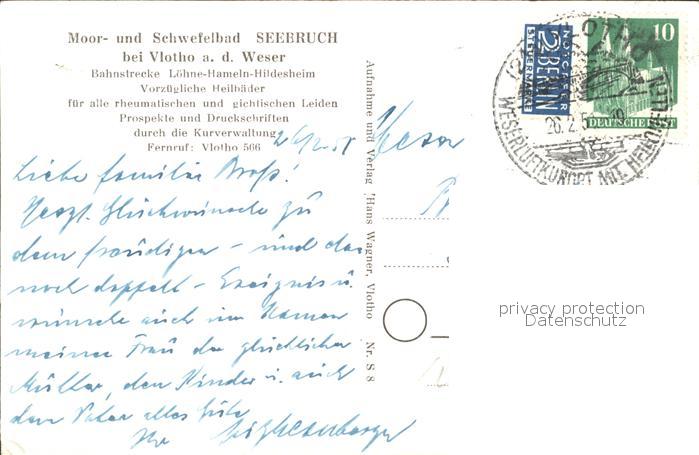 Moor- und Schwefelbad SEEBRUCH
bei Vlotho a. d. Weser
Bahnstrecke Löhne-Hameln-Hildesheim
Vorzügliche Heilbäder
für alle rheumatischen und gichtischen Leiden
Prospekte und Druckschriften
durch die Kurverwaltung
Fernruf: Vlotho 566
Liebe Familie
Herzl. Glückwünsche zu
dem freudigen - und da
noch doppelt - Ereignis u.
wünsche auch im Namen
meiner Frau der glücklichen
Mutter, den Kinder u. auch
dem Vater alles Gute
Ihr
Aufnahme und Verlag Hans Wagner, Vlotho Nr. S 8
NOTOPFER
2 BERLIN
STEUERMARKE
10
DEUTSCHE POST
WESERLUFTKURORT MIT
privacy protection
Datenschutz